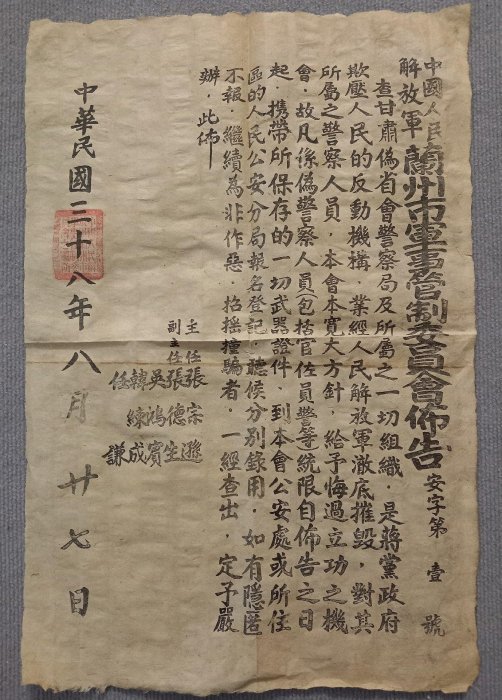 中國人民
解放軍
蘭州市軍事管制委員會佈告 安字第壹號
查甘肅偽省會警察局及所屬之一切組織，是蔣黨政府
欺壓人民的反動機構，業經人民解放軍澈底摧毀，對其
所屬之警察人員，本會本寬大方針，給予悔過立功之機
會，故凡係偽警察人員包括官佐員警等統限自佈告之日
起，携帶所保存的一切武器證件，到本會公安處或所住
區的人民公安分局報名登記，聽候分別錄用，如有隱匿
不報，繼續為非作惡，招摇撞騙者，一經查出，定予嚴
辦，此佈
主任 張宗遜
副主任 張德生
吳鴻賓
韓練成
任謙
中華民國三十八年八月廿七日